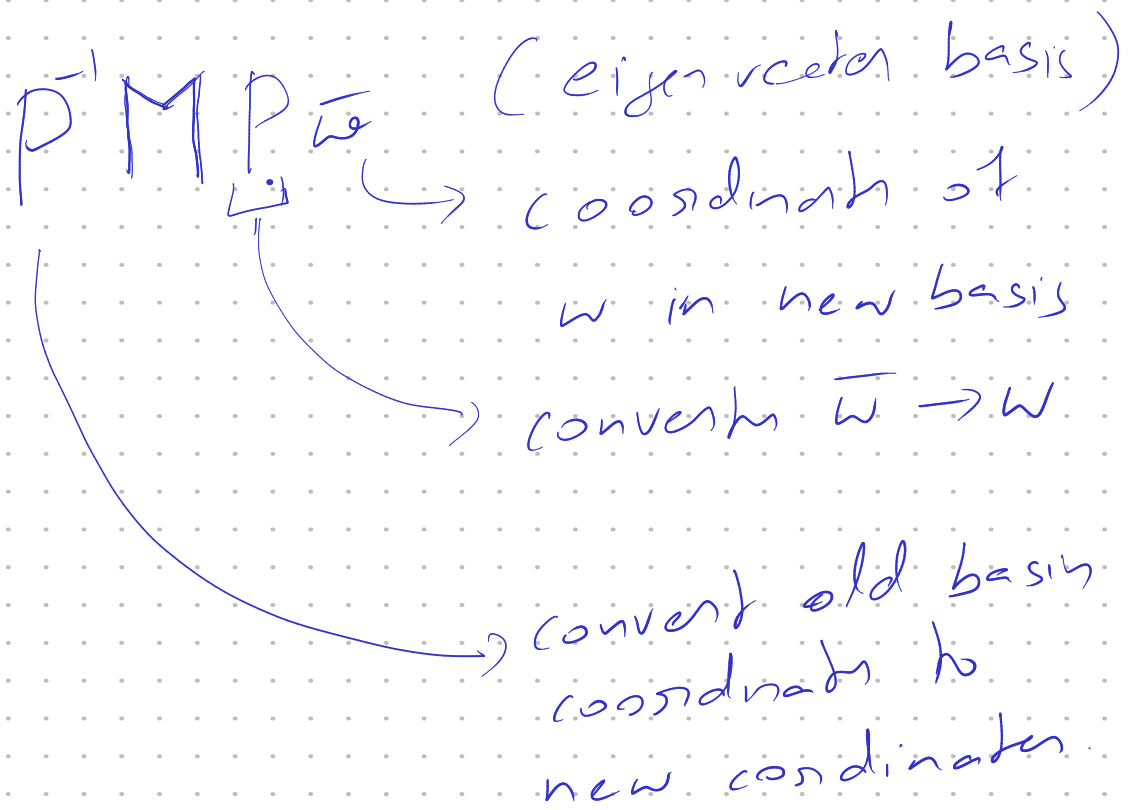 P⁻¹ M P w̅ (eigen vector basis)
coordinats of
w in new basis
converts w̅ → w
convert old basis
coordinats to
new coordinates.